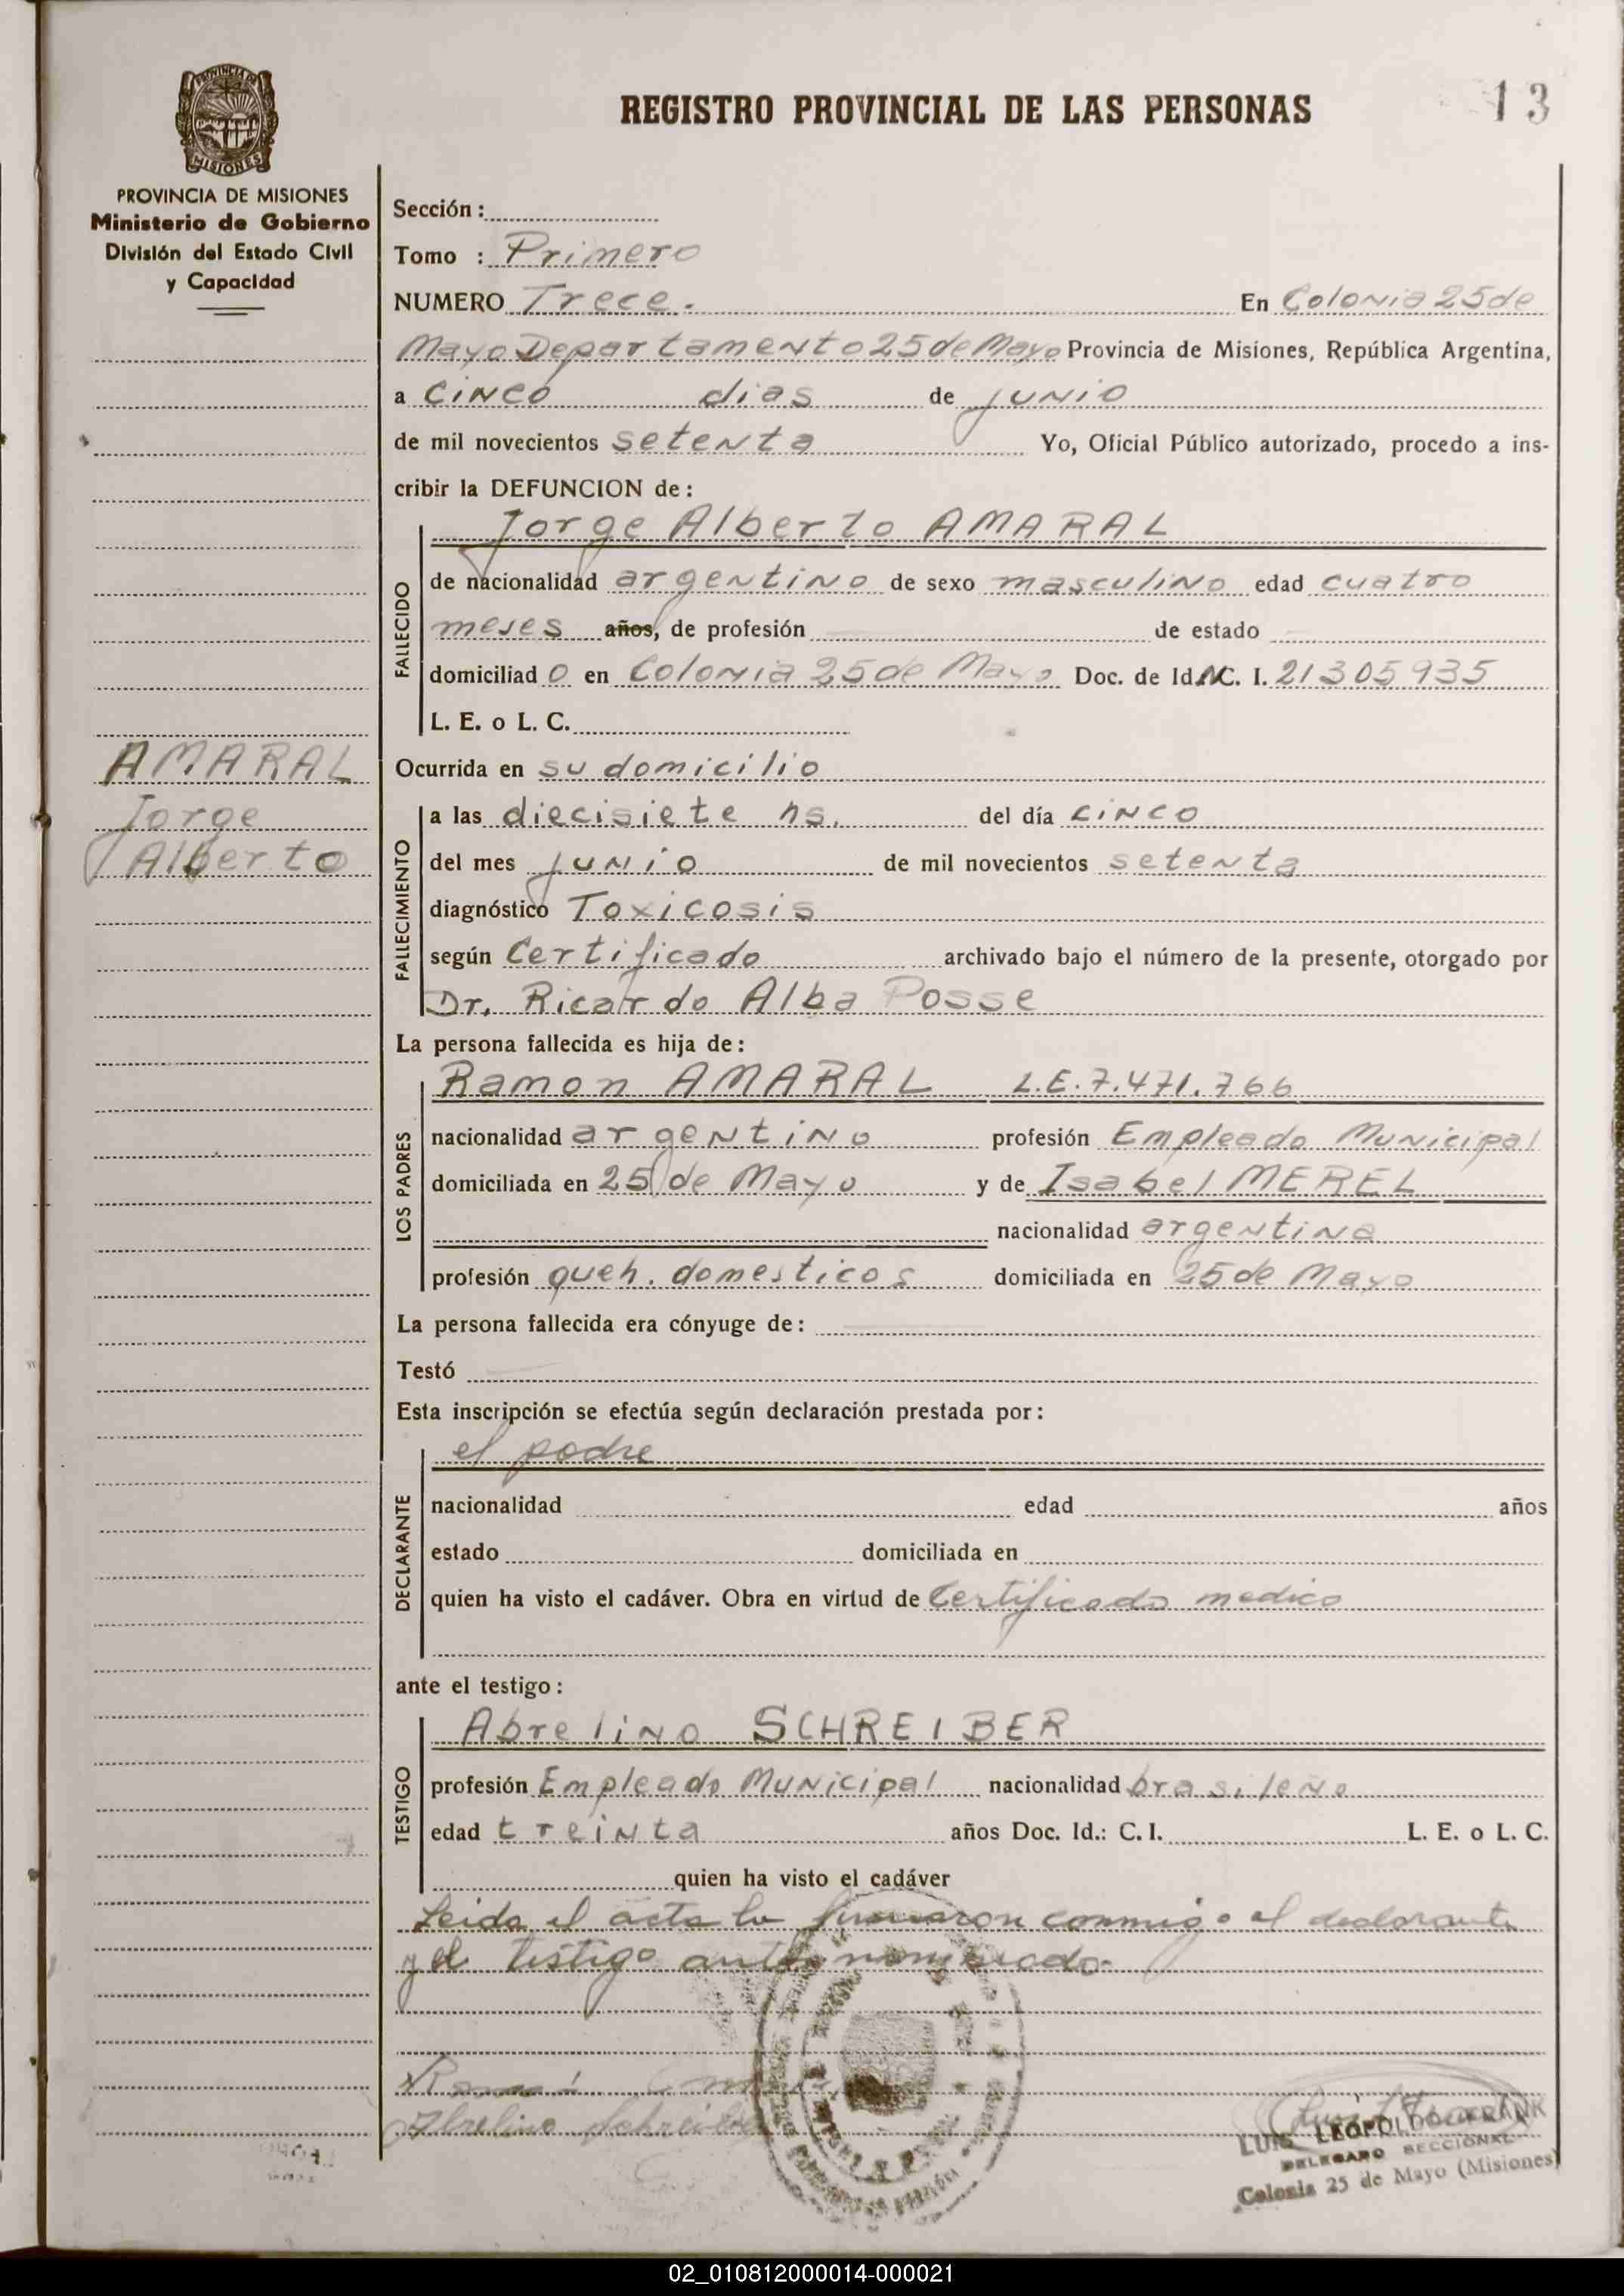 REGISTRO PROVINCIAL DE LAS PERSONAS
13
PROVINCIA DE MISIONES
MISIONES
PROVINCIA DE MISIONES
Ministerio de Gobierno
División del Estado Civil
y Capacidad
Sección:
Tomo : Primero
NUMERO Trece. En Colonia 25 de
Mayo Departamento 25 de Mayo Provincia de Misiones, República Argentina,
a cinco dias de junio
de mil novecientos setenta Yo, Oficial Público autorizado, procedo a ins-
cribir la DEFUNCION de:
FALLECIDO
Jorge Alberto AMARAL
de nacionalidad argentino de sexo masculino edad cuatro
meses años, de profesión de estado
domiciliad o en Colonia 25 de Mayo Doc. de Id. N C. I. 21305935
L. E. o L. C.
AMARAL
Jorge
Alberto
Ocurrida en su domicilio
FALLECIMIENTO
a las diecisiete hs. del día cinco
del mes junio de mil novecientos setenta
diagnóstico Toxicosis
según Certificado archivado bajo el número de la presente, otorgado por
Dr. Ricardo Alba Posse
La persona fallecida es hija de:
LOS PADRES
Ramon AMARAL L.E. 7.471.766
nacionalidad argentino profesión Empleado Municipal
domiciliada en 25 de Mayo y de Isabel MEREL
nacionalidad argentina
profesión queh. domesticos domiciliada en 25 de Mayo
La persona fallecida era cónyuge de:
Testó
Esta inscripción se efectúa según declaración prestada por:
DECLARANTE
el padre
nacionalidad edad años
estado domiciliada en
quien ha visto el cadáver. Obra en virtud de Certificado medico
ante el testigo:
TESTIGO
Abrelino SCHREIBER
profesión Empleado Municipal nacionalidad brasileño
edad treinta años Doc. Id.: C. I. L. E. o L. C.
quien ha visto el cadáver
Leida el acta la firmaron conmigo el declarante
y el testigo antes nombrado.
Abrelino Schreiber
LUIS LEOPOLDO FRANK
DELEGADO SECCIONAL
Colonia 25 de Mayo (Misiones)
02_010812000014-000021